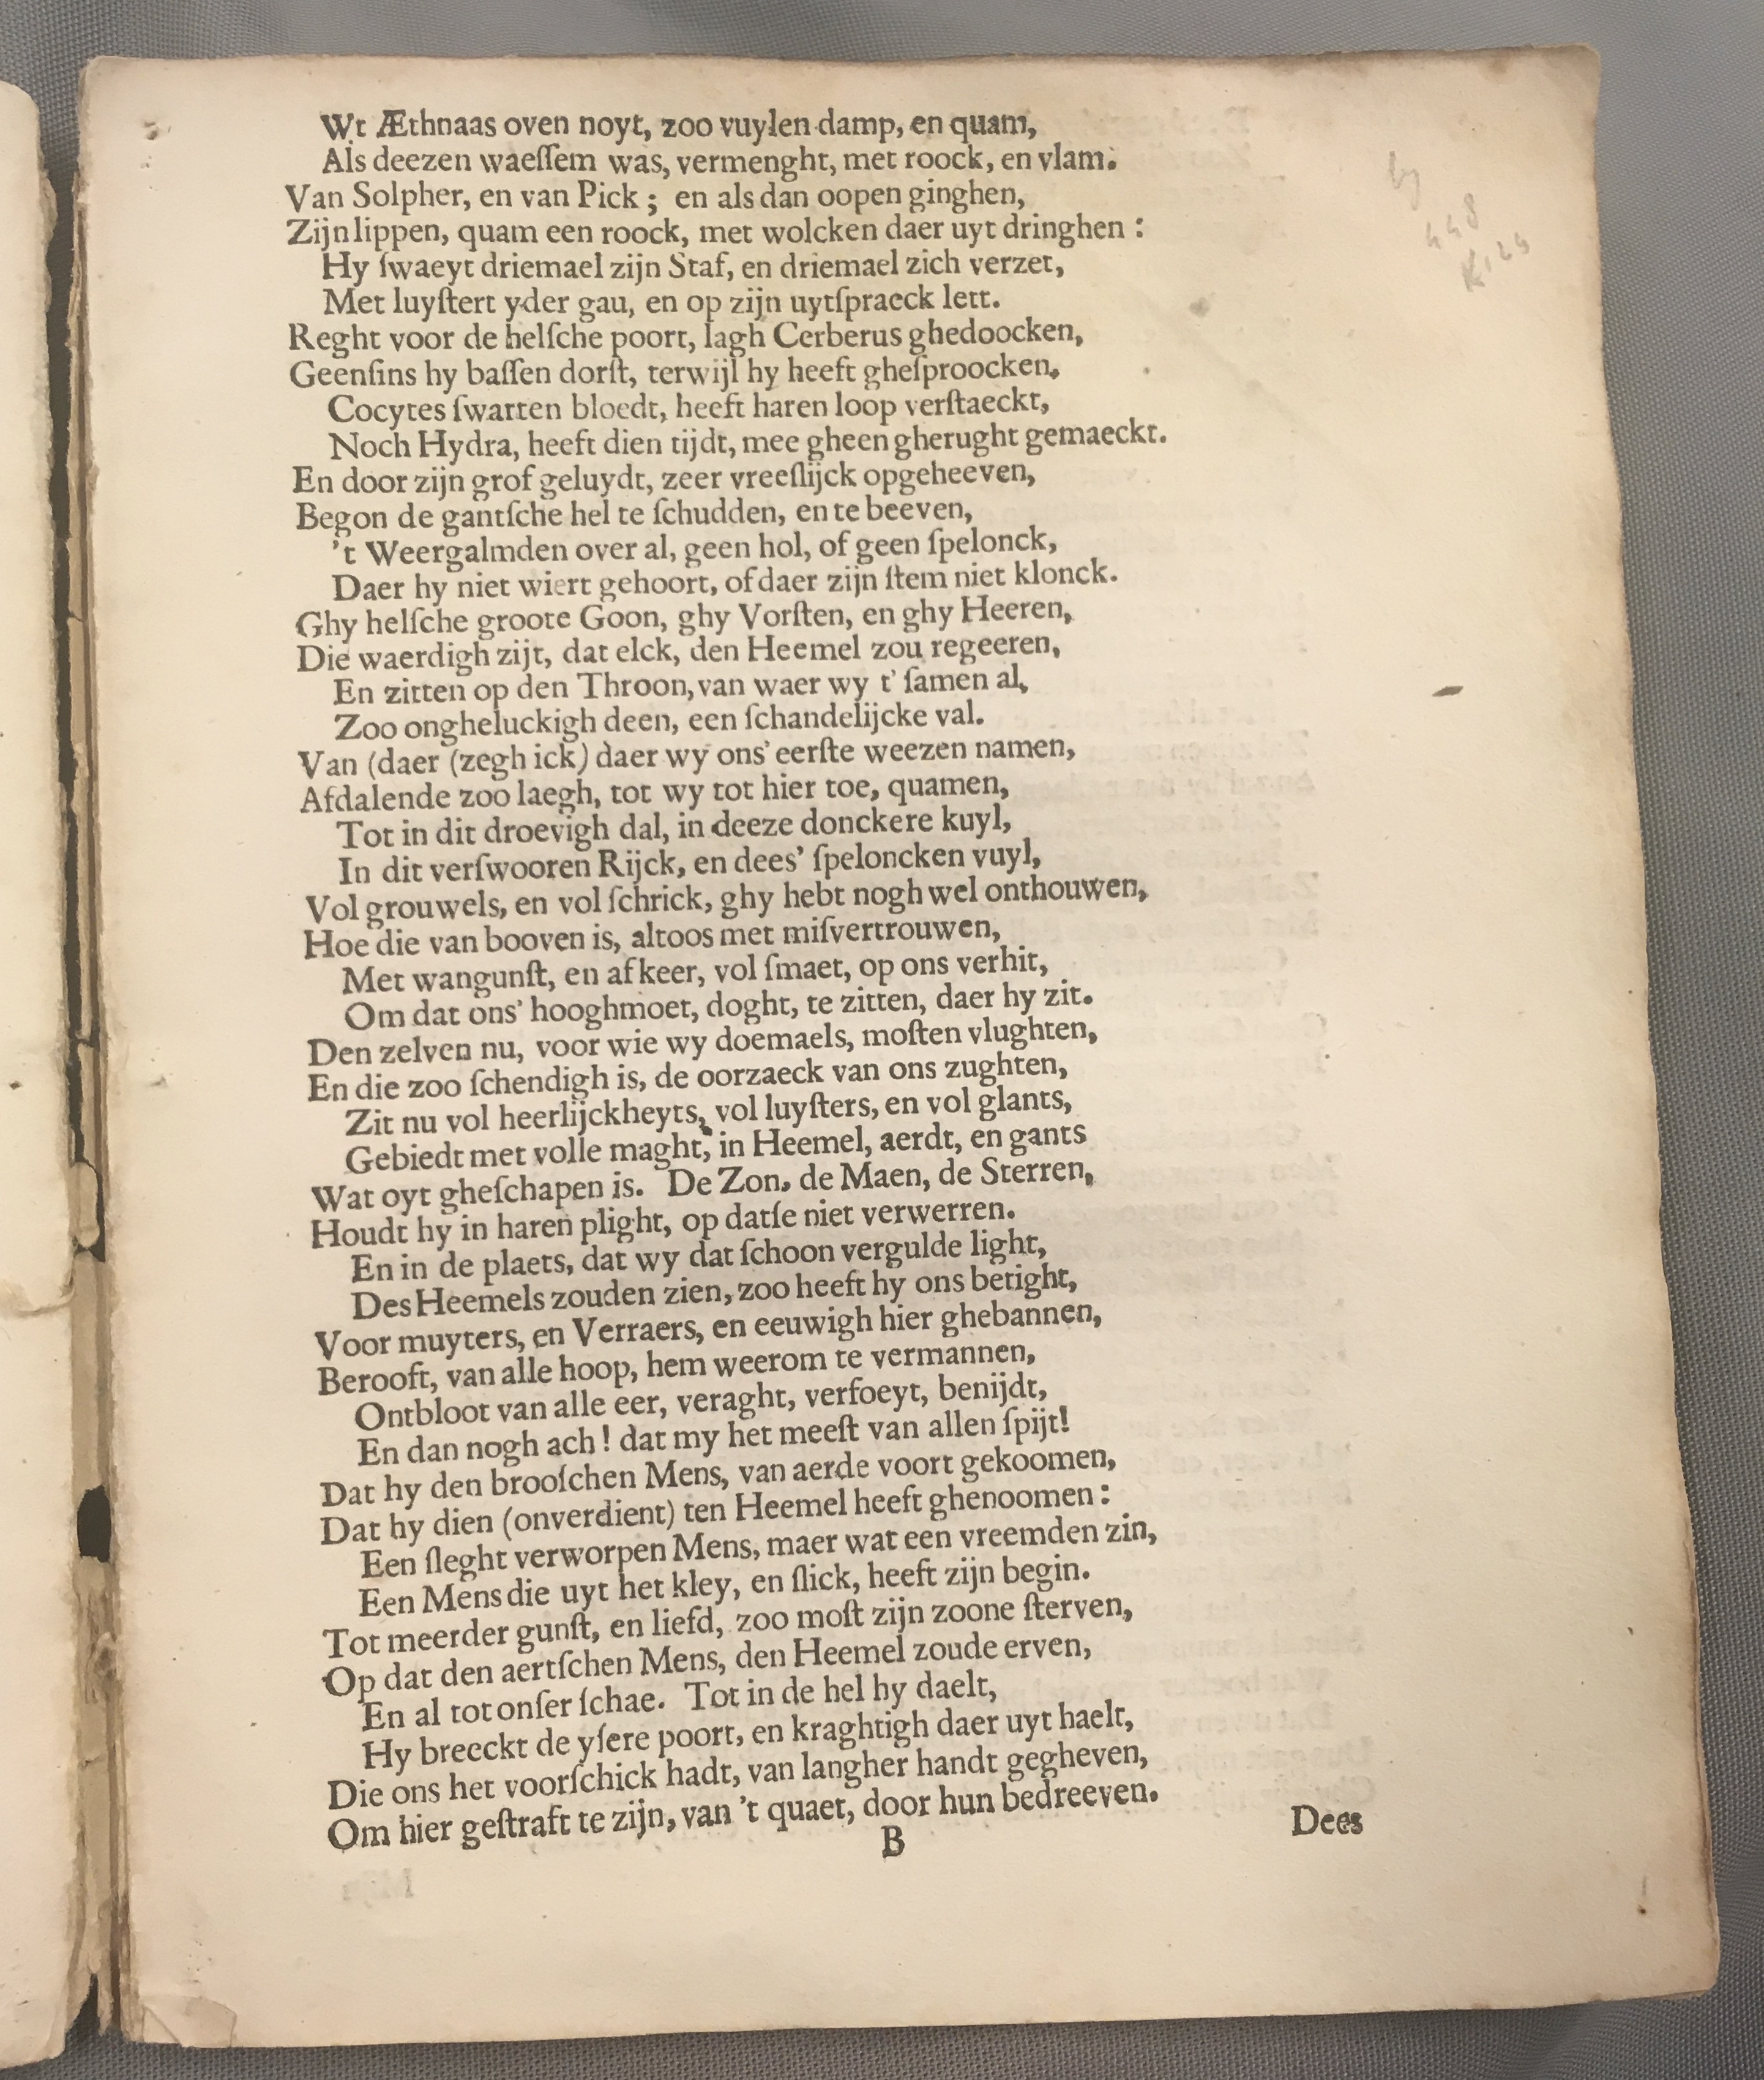 Wt Æthnaas oven noyt, zoo vuylen damp, en quam,
Als deezen waeſſem was, vermenght, met roock, en vlam.
Van Solpher, en van Pick; en als dan oopen ginghen,
Zijn lippen, quam een roock, met wolcken daer uyt dringhen:
Hy ſwaeyt driemael zijn Staf, en driemael zich verzet,
Met luyſtert yder gau, en op zijn uytſpraeck lett.
Reght voor de helſche poort, lagh Cerberus ghedoocken,
Geenſins hy baſſen dorſt, terwijl hy heeft gheſproocken.
Cocytes ſwarten bloedt, heeft haren loop verſtaeckt,
Noch Hydra, heeft dien tijdt, mee gheen gherught gemaeckt.
En door zijn grof geluydt, zeer vreeſlijck opgeheeven,
Begon de gantſche hel te ſchudden, en te beeven,
't Weergalmden over al, geen hol, of geen ſpelonck,
Daer hy niet wiert gehoort, of daer zijn ſtem niet klonck.
Ghy helſche groote Goon, ghy Vorſten, en ghy Heeren,
Die waerdigh zijt, dat elck, den Heemel zou regeeren,
En zitten op den Throon, van waer wy t' ſamen al,
Zoo ongheluckigh deen, een ſchandelijcke val.
Van (daer (zegh ick) daer wy ons' eerſte weezen namen,
Afdalende zoo laegh, tot wy tot hier toe, quamen,
Tot in dit droevigh dal, in deeze donckere kuyl,
In dit verſwooren Rijck, en dees' ſpeloncken vuyl,
Vol grouwels, en vol ſchrick, ghy hebt nogh wel onthouwen,
Hoe die van booven is, altoos met miſvertrouwen,
Met wangunſt, en afkeer, vol ſmaet, op ons verhit,
Om dat ons' hooghmoet, doght, te zitten, daer hy zit.
Den zelven nu, voor wie wy doemaels, moſten vlughten,
En die zoo ſchendigh is, de oorzaeck van ons zughten,
Zit nu vol heerlijckheyts, vol luyſters, en vol glants,
Gebiedt met volle maght, in Heemel, aerdt, en gants
Wat oyt gheſchapen is. De Zon, de Maen, de Sterren,
Houdt hy in haren plight, op datſe niet verwerren.
En in de plaets, dat wy dat ſchoon vergulde light,
Des Heemels zouden zien, zoo heeft hy ons betight,
Voor muyters, en Verraers, en eeuwigh hier ghebannen,
Berooft, van alle hoop, hem weerom te vermannen,
Ontbloot van alle eer, veraght, verfoeyt, benijdt,
En dan nogh ach! dat my het meeſt van allen ſpijt!
Dat hy den brooſchen Mens, van aerde voort gekoomen,
Dat hy dien (onverdient) ten Heemel heeft ghenoomen:
Een ſleght verworpen Mens, maer wat een vreemden zin,
Een Mens die uyt het kley, en ſlick, heeft zijn begin.
Tot meerder gunſt, en liefd, zoo moſt zijn zoone ſterven,
Op dat den aertſchen Mens, den Heemel zoude erven,
En al tot onſer ſchae. Tot in de hel hy daelt,
Hy breeckt de yſere poort, en kraghtigh daer uyt haelt,
Die ons het voorſchick hadt, van langher handt gegheven,
Om hier geſtraft te zijn, van 't quaet, door hun bedreeven.
B
Dees
448